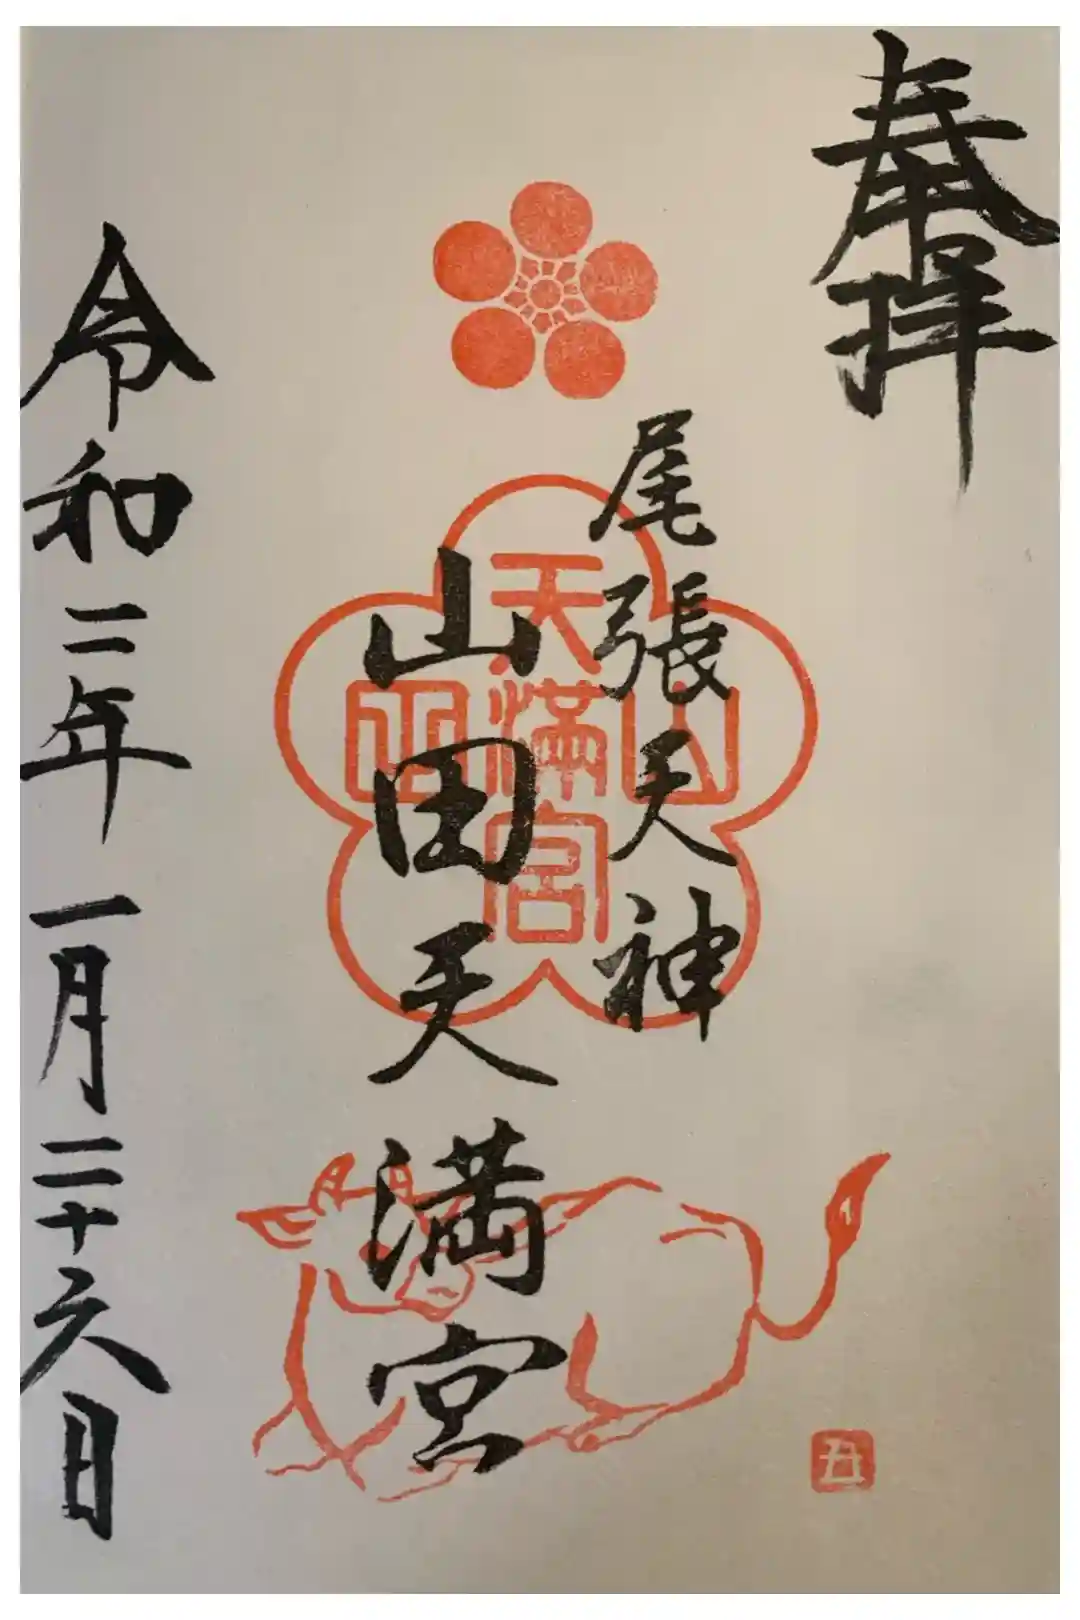 奉拝
尾張天神
山田天満宮
令和二年一月二十六日
山
天滿宮
丑